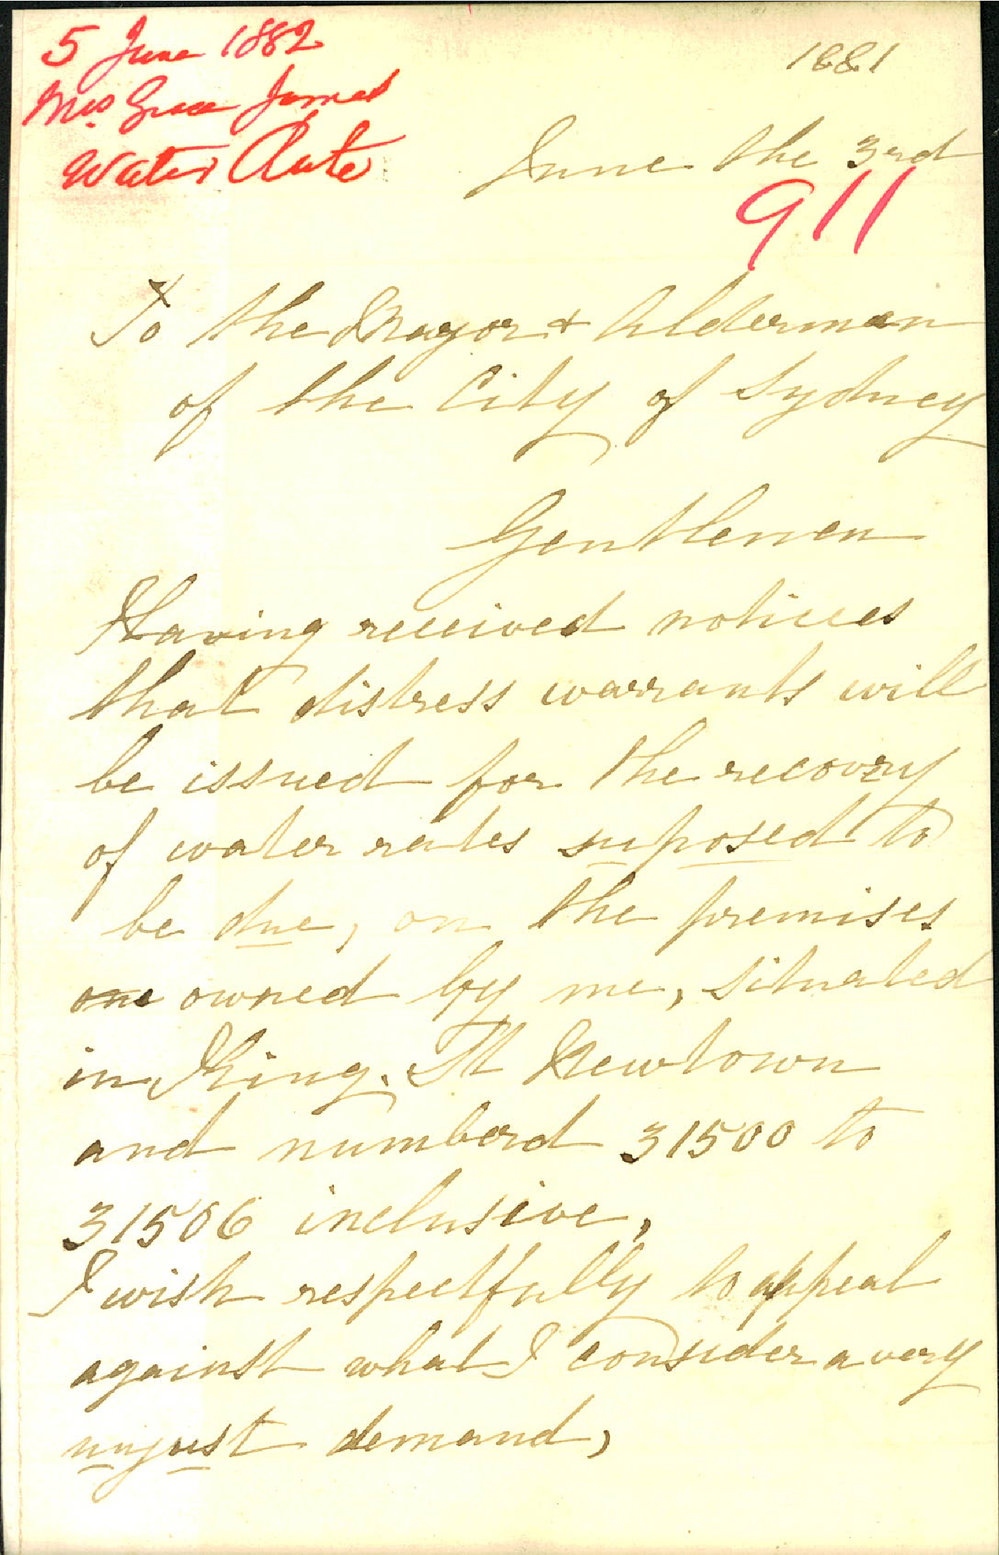 5 June 1882
Mrs Grace James
Water Rate
1881
June the 3rd
911
To the Mayor & Aldermen
of the City of Sydney
Gentlemen
Having received notices
that distress warrants will
be issued for the recovery
of water rates suposed to
be due, on the premises
one owned by me, situated
in King. St Newtown
and numberd 31500 to
31506 inclusive,
I wish respectfully to appeal
against what I consider a very
unjust demand,